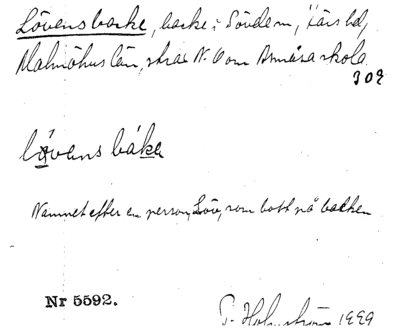 Lövens backe, backe i Sövde sn, Färs hd,
Malmöhus län, strax N. O om Assmåsa skola.
309
lövens báke
Namnet efter en person, Löv, som bott på backen
Nr 5592.